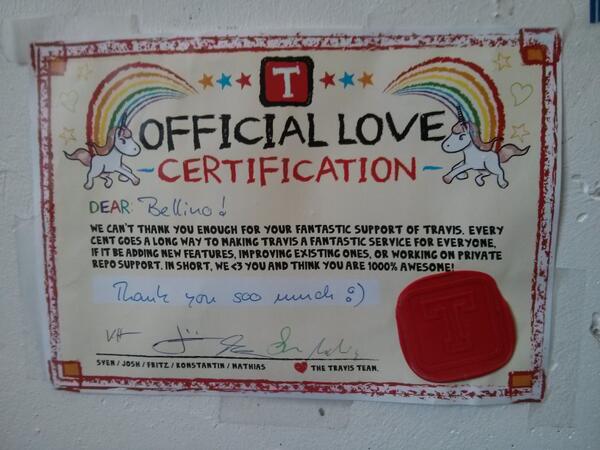 T
OFFICIAL LOVE
~CERTIFICATION~
DEAR: Bellino!
WE CAN'T THANK YOU ENOUGH FOR YOUR FANTASTIC SUPPORT OF TRAVIS. EVERY
CENT GOES A LONG WAY TO MAKING TRAVIS A FANTASTIC SERVICE FOR EVERYONE,
IF IT BE ADDING NEW FEATURES, IMPROVING EXISTING ONES, OR WORKING ON PRIVATE
REPO SUPPORT. IN SHORT, WE <3 YOU AND THINK YOU ARE 1000% AWESOME!
Thank you soo much :)
SVEN / JOSH / FRITZ / KONSTANTIN / MATHIAS
THE TRAVIS TEAM.
T